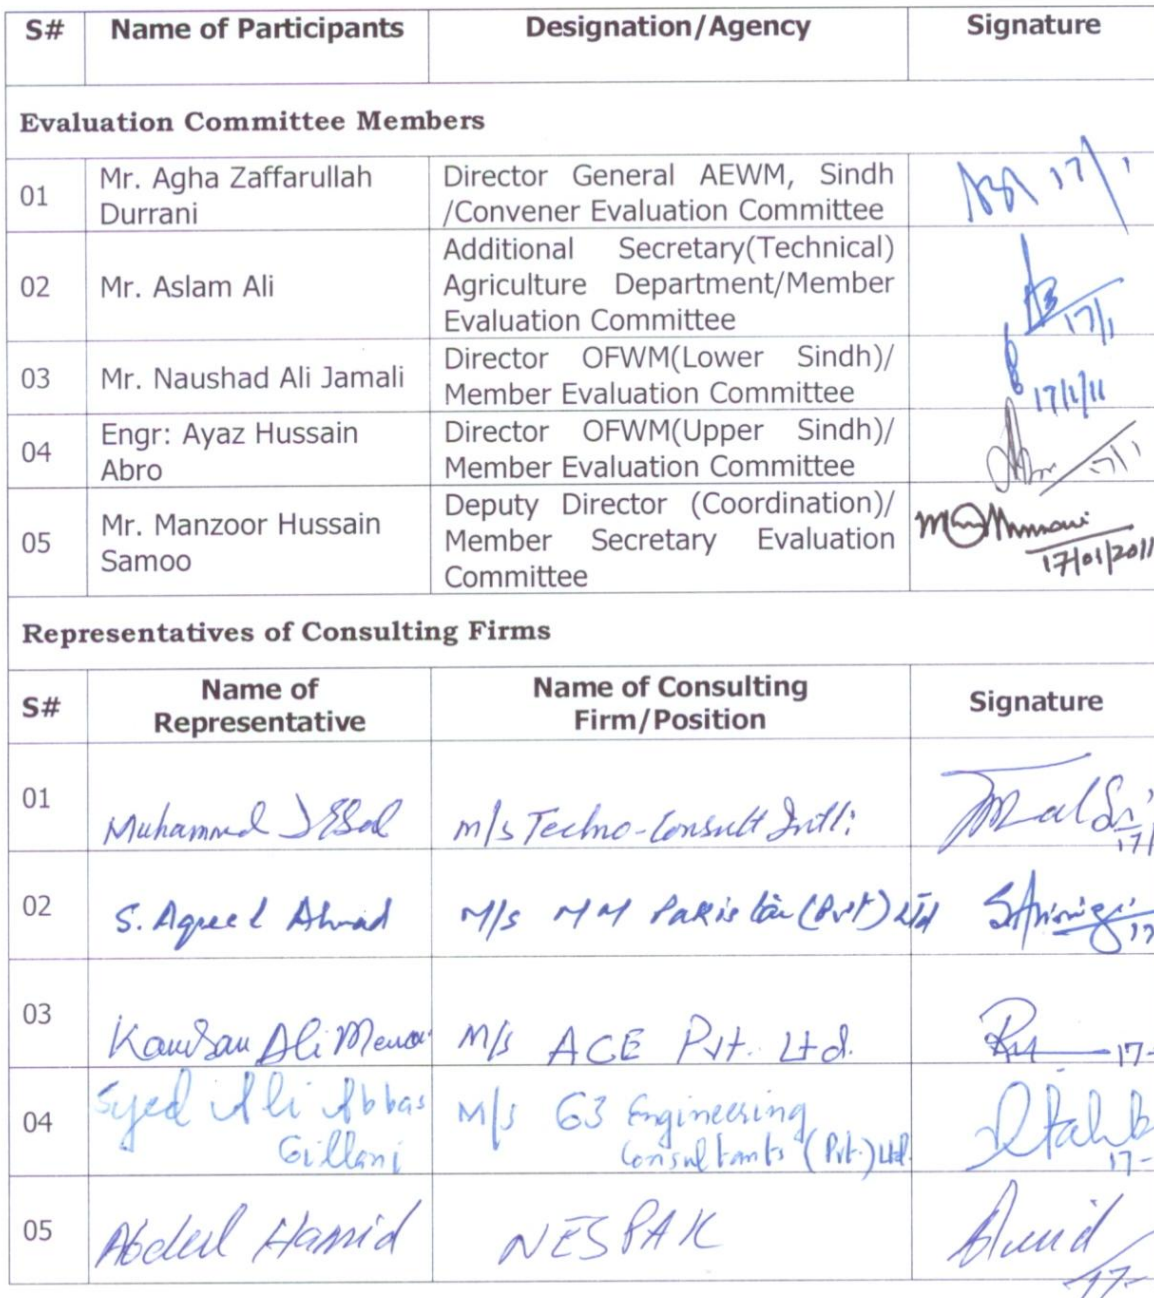 S# Name of Participants Designation/Agency Signature
Evaluation Committee Members
01 Mr. Agha Zaffarullah Durrani Director General AEWM, Sindh /Convener Evaluation Committee 17/1
02 Mr. Aslam Ali Additional Secretary(Technical) Agriculture Department/Member Evaluation Committee 17/1
03 Mr. Naushad Ali Jamali Director OFWM(Lower Sindh)/ Member Evaluation Committee 17/1/11
04 Engr: Ayaz Hussain Abro Director OFWM(Upper Sindh)/ Member Evaluation Committee 17/1
05 Mr. Manzoor Hussain Samoo Deputy Director (Coordination)/ Member Secretary Evaluation Committee 17/01/2011
Representatives of Consulting Firms
S# Name of Representative Name of Consulting Firm/Position Signature
01 Muhammad m/s Techno-Consult Intl: 17/
02 S. Aqeel Ahmad M/s MM Pakistan (Pvt) Ltd 17
03 Kamran Ali Memon M/s ACE Pvt. Ltd. 17-
04 Syed Ali Abbas Gillani M/s G3 Engineering Consultants (Pvt.) Ltd. 17-
05 Abdul Hamid NESPAK 17-